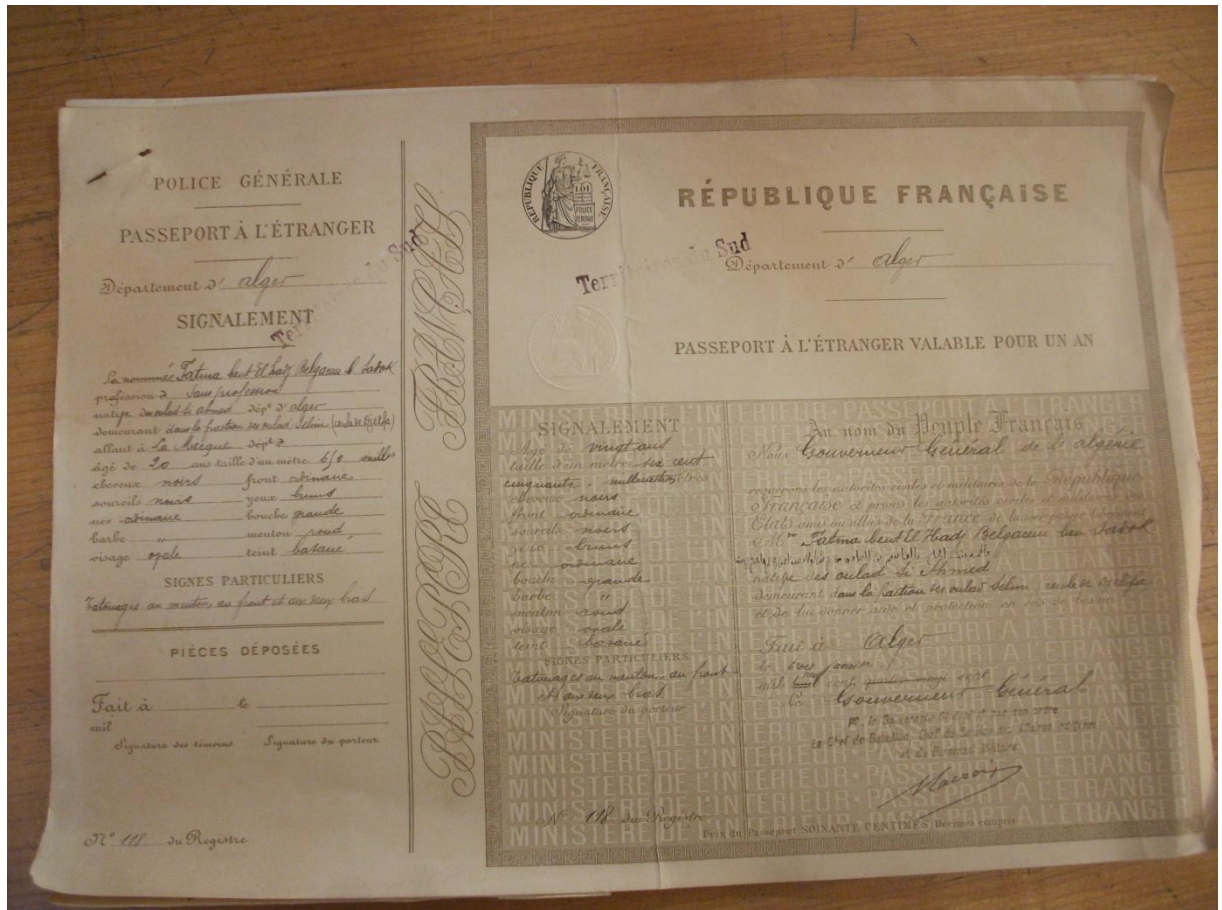 POLICE GÉNÉRALE
PASSEPORT À L'ÉTRANGER
Département d' alger
Territoires du Sud
SIGNALEMENT
La nommée Fatma bent El hadj Belgacem b. Sadok
profession d sans profession
natif des oulad si ahmed dépt d' alger
demeurant dans la fraction des oulad Selim (
allant à La Mecque dépt d
âgé de 20 ans taille d'un mètre 650 milles
cheveux noirs front ordinaire
sourcils noirs yeux bruns
nez ordinaire bouche grande
barbe " menton rond
visage ovale teint basané
SIGNES PARTICULIERS
Tatouages au menton au front et aux deux bras
PIÈCES DÉPOSÉES
Fait à le
mil
Signature des témoins Signature du porteur
N° 118 du Registre
PASSEPORT FRANÇAIS
RÉPUBLIQUE FRANÇAISE
POLICE GÉNÉRALE
RÉPUBLIQUE FRANÇAISE
Territoires du Sud
Département d' alger
PASSEPORT À L'ÉTRANGER VALABLE POUR UN AN
SIGNALEMENT
Age de vingt ans
taille d'un mètre six cent
cinquante millimètres
cheveux noirs
front ordinaire
sourcils noirs
yeux bruns
nez ordinaire
bouche grande
barbe "
menton rond
visage ovale
teint basané
SIGNES PARTICULIERS
tatouages au menton au front
et aux deux bras
Signature du porteur
N° 118 du Registre
Au nom du Peuple Français
Nous Gouverneur Général de l'algérie
requérons les autorités civiles et militaires de la République
Française et prions les autorités civiles et militaires des
Etats amis ou alliés de la France de laisser passer librement
Mme Fatma bent El Hadj Belgacem ben Sadok
natif des oulad Si Ahmed
demeurant dans la fraction des oulad Selim
et de lui donner aide et protection en cas de besoin
Fait à Alger
le janvier
mil cent
Le Gouverneur Général
Pr. le Gouverneur Général et par son ordre
Le Chef de Bataillon, Chef du Service des Affaires indigènes
et du Personnel Militaire
Prix du Passeport SOIXANTE CENTIMES, Décimes compris
MINISTÈRE DE L'INTÉRIEUR · PASSEPORT A L'ETRANGER